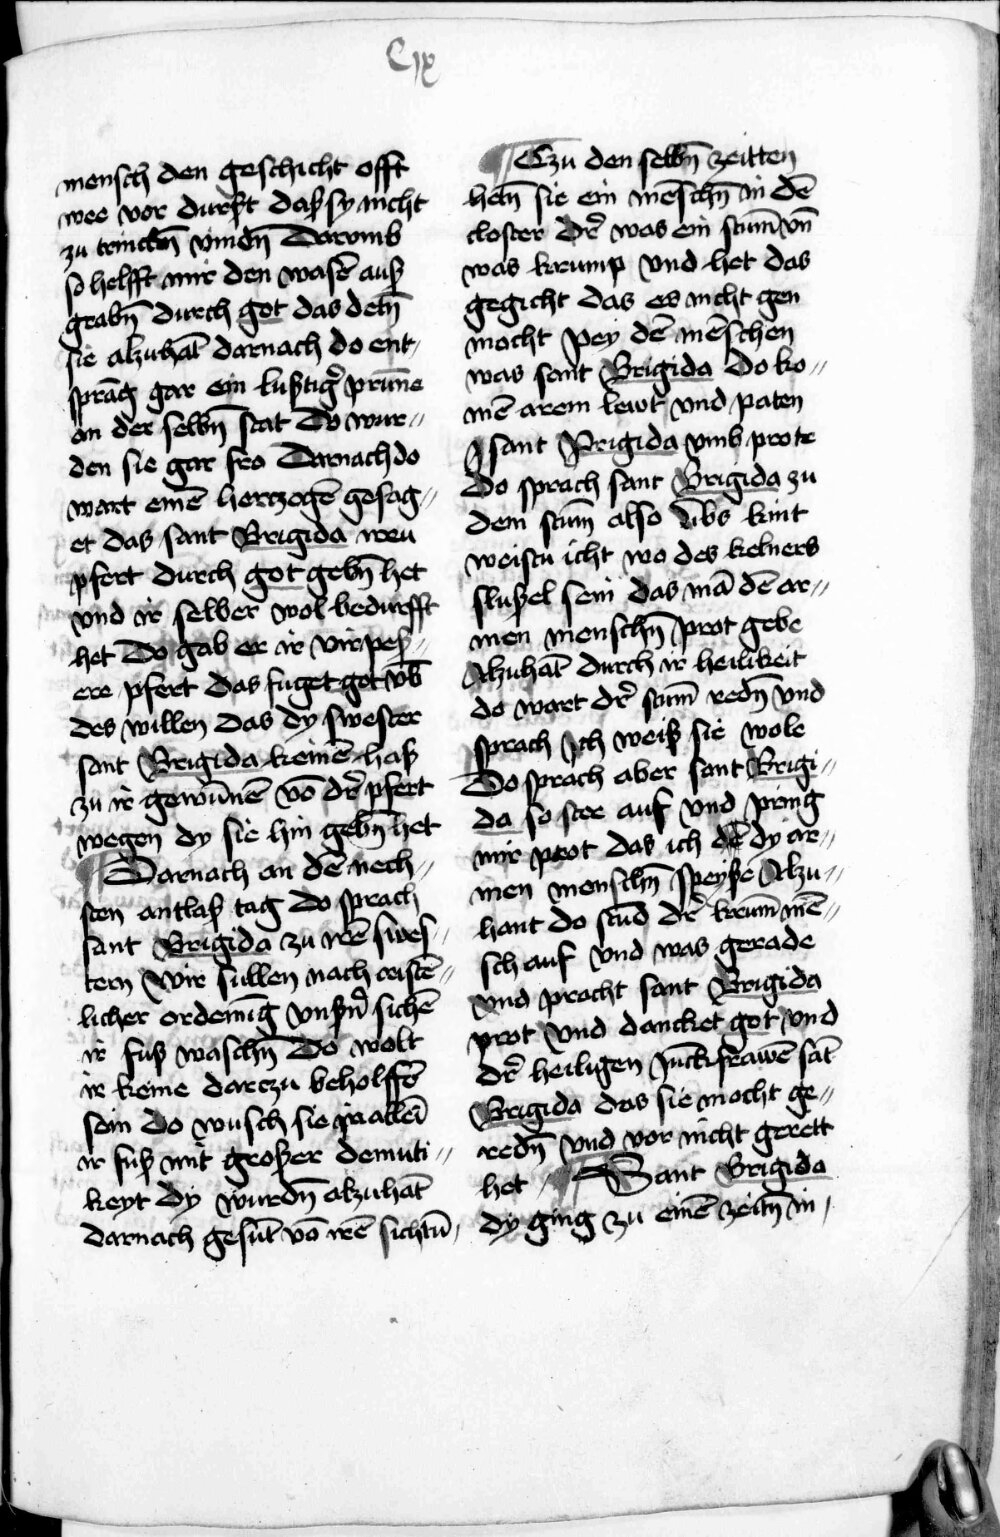 Cix
mensch den geschicht offt
wee vor durst daß sy nicht
zu trinckē vindn̄ Darvmb
so helfft mir den wasē auß
grabn̄ durch got das detn̄
sie alzuhāt darnach do ent-
sprāg gar ein lustigͤ prūne
an der selbn̄ stat Do wur-
den sie gar fro Darnach do
wart einē hertzogē gesag-
et das sant Brigida ireu
pfert durch got gebn̄ het
vnd ir selber wol bedurfft
het Do gab er ir vir peß-
ere pfert das fuget got vb̄
des willen das dy swester
sant Brigida keinē haß
zu ir gewūnē vō dr̄ pfert
wegen dy sie hin gebn̄ het
Darnach an dē nech-
sten antlaß tag do sprach
sant Brigida zu irē swes-
tern Wir sullen nach cristē-
licher ordenūg vnsn̄ sichē
ir fuß waschn̄ Do wolt
ir keine darczu beholffē
sein do wusch sie in alleī
ir fuß mit großer demuti-
keyt dy wurdn̄ alzuhāt
darnach gesūt vō irē sichtū
Czu den selbn̄ zeitten
hetn̄ sie ein mēschn̄ in dē
closter dr̄ was ein stūm vn̄
was krump vnd het das
gegicht das es nicht gen
mocht pey dē mēschen
was sant Brigida Do ko-
mē arem lewt vnd paten
sant Brigida vmb prote
Do sprach sant Brigida zu
dem stūm also libs kint
weistu icht wo des kelners
slußel sein das mā dē ar-
men menschn̄ prot gebe
Alzuhāt durch ir heilikeit
do wart dr̄ stūm redn̄ vnd
sprach Ich weiß sie wole
Do sprach aber sant Brigi-
da so stee auf vnd pring
mir prot das ich dē dy ar-
men menschn̄ speyße Alzu-
hant do stūd dr̄ krūm mē-
sch auf vnd was gerade
vnd pracht sant Brigida
prot vnd dancket got vnd
dr̄ heiligen jūckfrawē sāt
Brigida das sie mocht ge-
redn̄ vnd vor nicht gerett
het Sant Brigida
dy ging zu einē zeitn̄ in